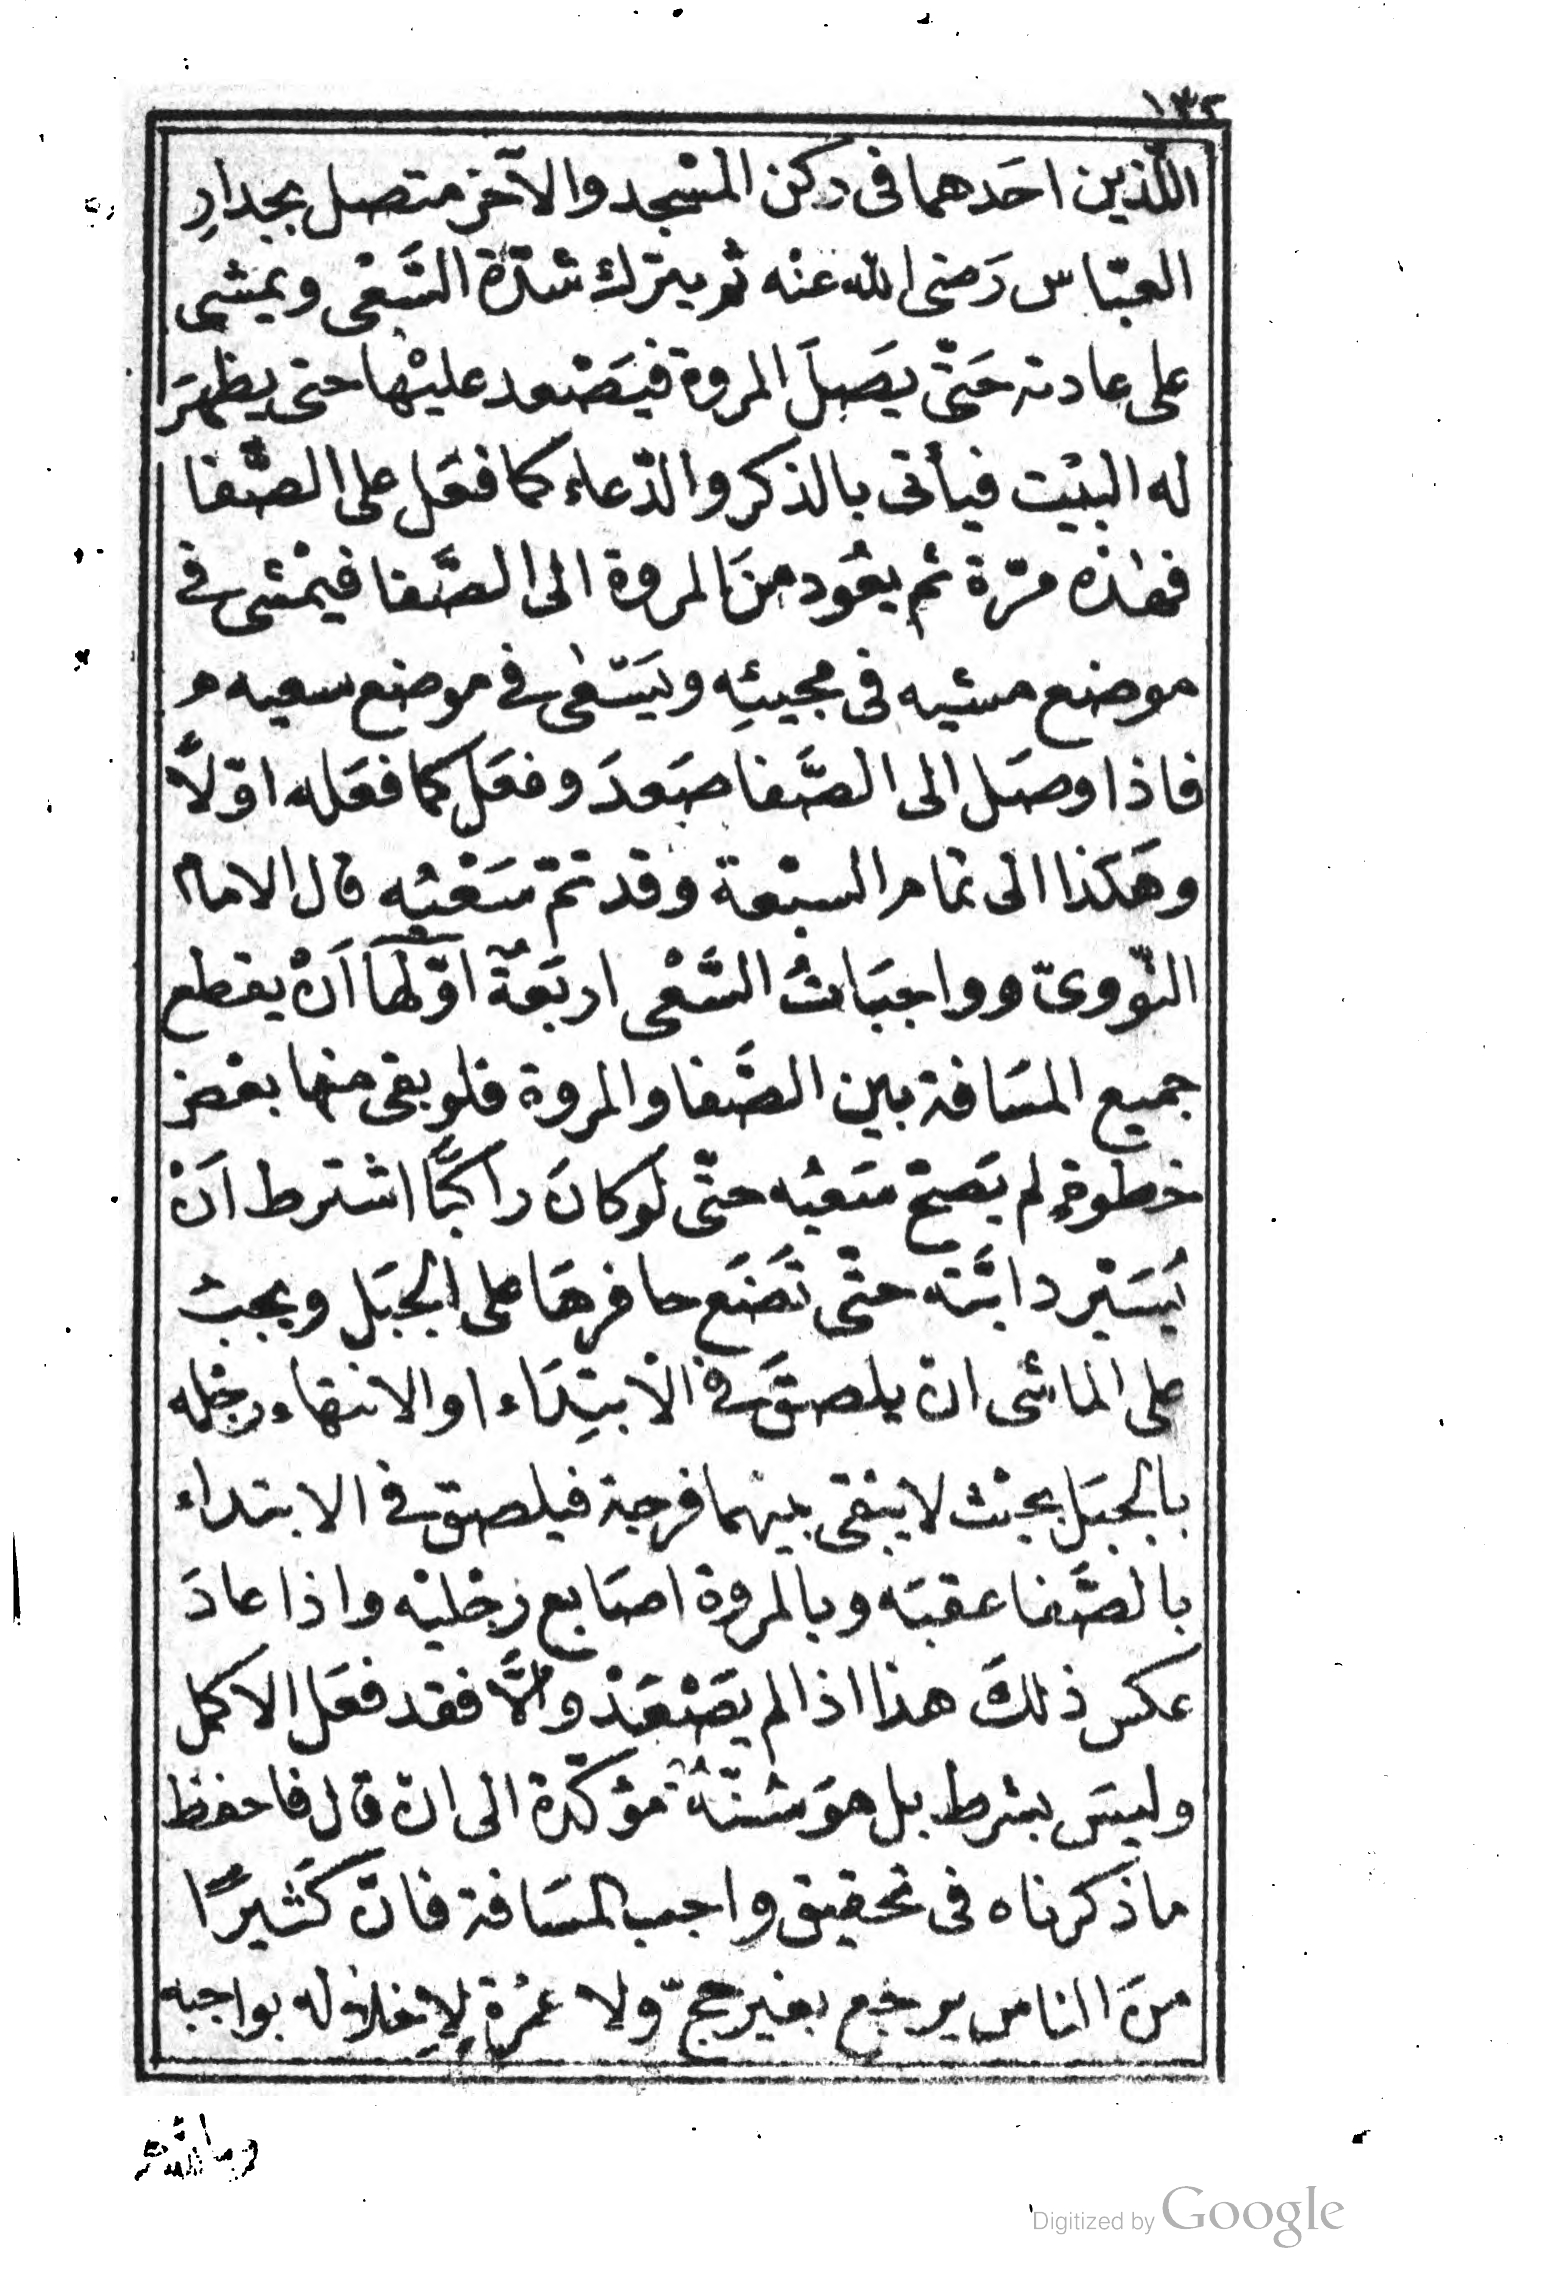 ١٣٢
اللّذين احَدهما فى ركن المسْجد والآخر متصل بجدارِ
العبّاس رَضى الله عنه ثم يترك شدّة السَّعْى ويمشى
على عادته حَتّى يصَلَ المروة فيَصْعد عليْها حتى يظهرَ
له البيْت فيأتى بالذكر والدّعاء كما فعَل على الصَّفا
فهذه مرّة ثم يعُود منَ المروة الى الصَّفا فيمْشى فى
موضع مشيه فى مجيئِه ويَسْعٰى فى موضع سعيه م
فاذا وصَل الى الصَّفا صَعدَ وفعَل كما فعَله اوّلاً
وهَكذا الى تمام السبْعة وقد تمّ سَعْيُه قال الامام
النّووىّ وواجبَاتُ السَّعْى اربَعَةٌ اوّلهَا اَنْ يقطع
جميع المسَافة بين الصَّفا والمروة فلو بقى منها بعْض
خطوةٍ لم يَصحّ سَعْيُه حتّى لو كانَ راكبًا اشترط اَنْ
يُسَيّر دابَّته حتّى تَضَع حافرهَا على الجبَل ويجبُ
على الماشى ان يلصقَ فى الْابتِدَاء او الانتهاء رجْله
بالجبَل بحيْث لا يبْقى بينهما فرجة فيلصق فى الابتداء
بالصَّفا عقبَه وبالمروة اصَابع رجْليْه واذا عادَ
عكس ذلكَ هذا اذا لم يَصْعَدْ والَّا فقد فعَل الاكمل
وليسَ بشرط بل هوَ سُنّةٌ مؤكّدة الى ان قال فاحفظ
ما ذكرناه فى تحقيق واجب المسَافة فانّ كَثيرًا
منَ الناس يرجْع بغير حجّ ولا عمْرة لِاِخلاله بواجبه
Digitized by Google